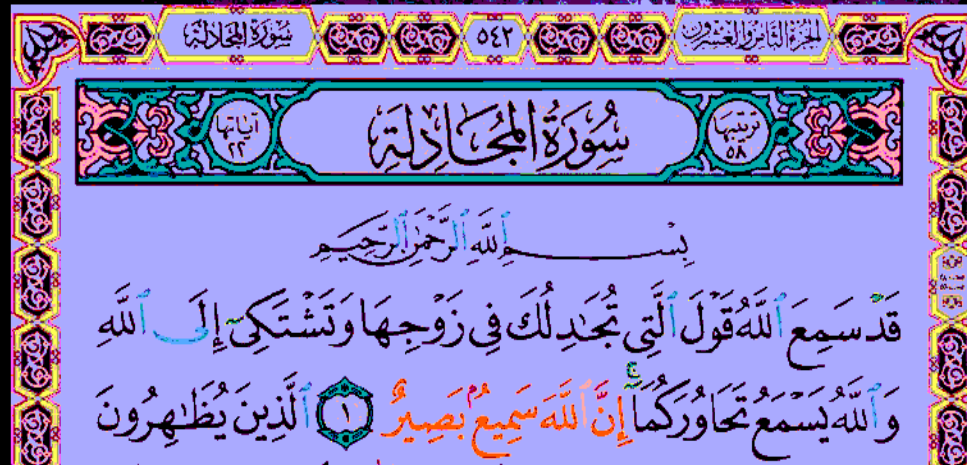 الجزء الثامن والعشرون ٥٤٢ سورة المجادلة
ترتيبها ٥٨ سُورَةُ المُجَادلَة آياتها ٢٢
بِسْمِ ٱللَّهِ ٱلرَّحْمَٰنِ ٱلرَّحِيمِ
قَدْ سَمِعَ ٱللَّهُ قَوْلَ ٱلَّتِي تُجَٰدِلُكَ فِي زَوْجِهَا وَتَشْتَكِيٓ إِلَى ٱللَّهِ
وَٱللَّهُ يَسْمَعُ تَحَاوُرَكُمَآ ۚ إِنَّ ٱللَّهَ سَمِيعُۢ بَصِيرٌ ١ ٱلَّذِينَ يُظَٰهِرُونَ